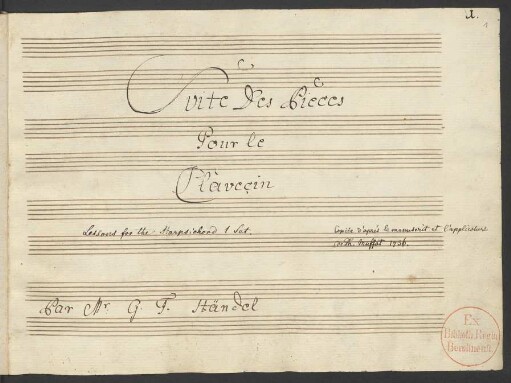 1.
Suite Des Pieces
Pour le
Claveçin
Lessons for the Harpsichord 1 Set.
Copité d'après le manuscrit et l'application
Gottl. Muffat 1736.
Par Mr G. F. Händel
Ex
Biblioth. Regia
Berolinensi.